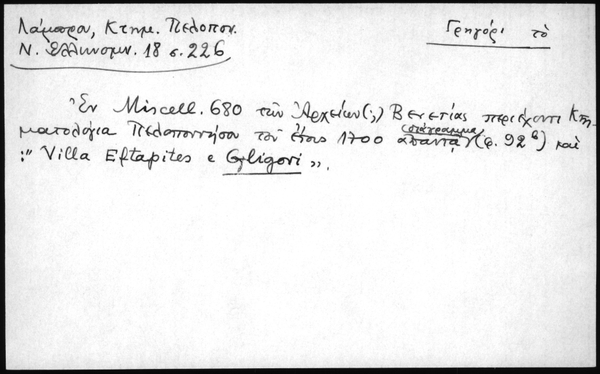 Λάμπρου, Κτημ. Πελοπον.
Ν. Ἑλληνομν. 18 σ. 226
Γρηγόρι τὸ
Ἐν Miscell. 680 τῶν Ἀρχείων (;) Βενετίας περιέχοντι Κτη-
ματολόγια Πελοποννήσου τοῦ ἔτους 1700 ἀπαντᾷ (φ. 92β) καὶ
: " Villa Eftapites e Gligori ».